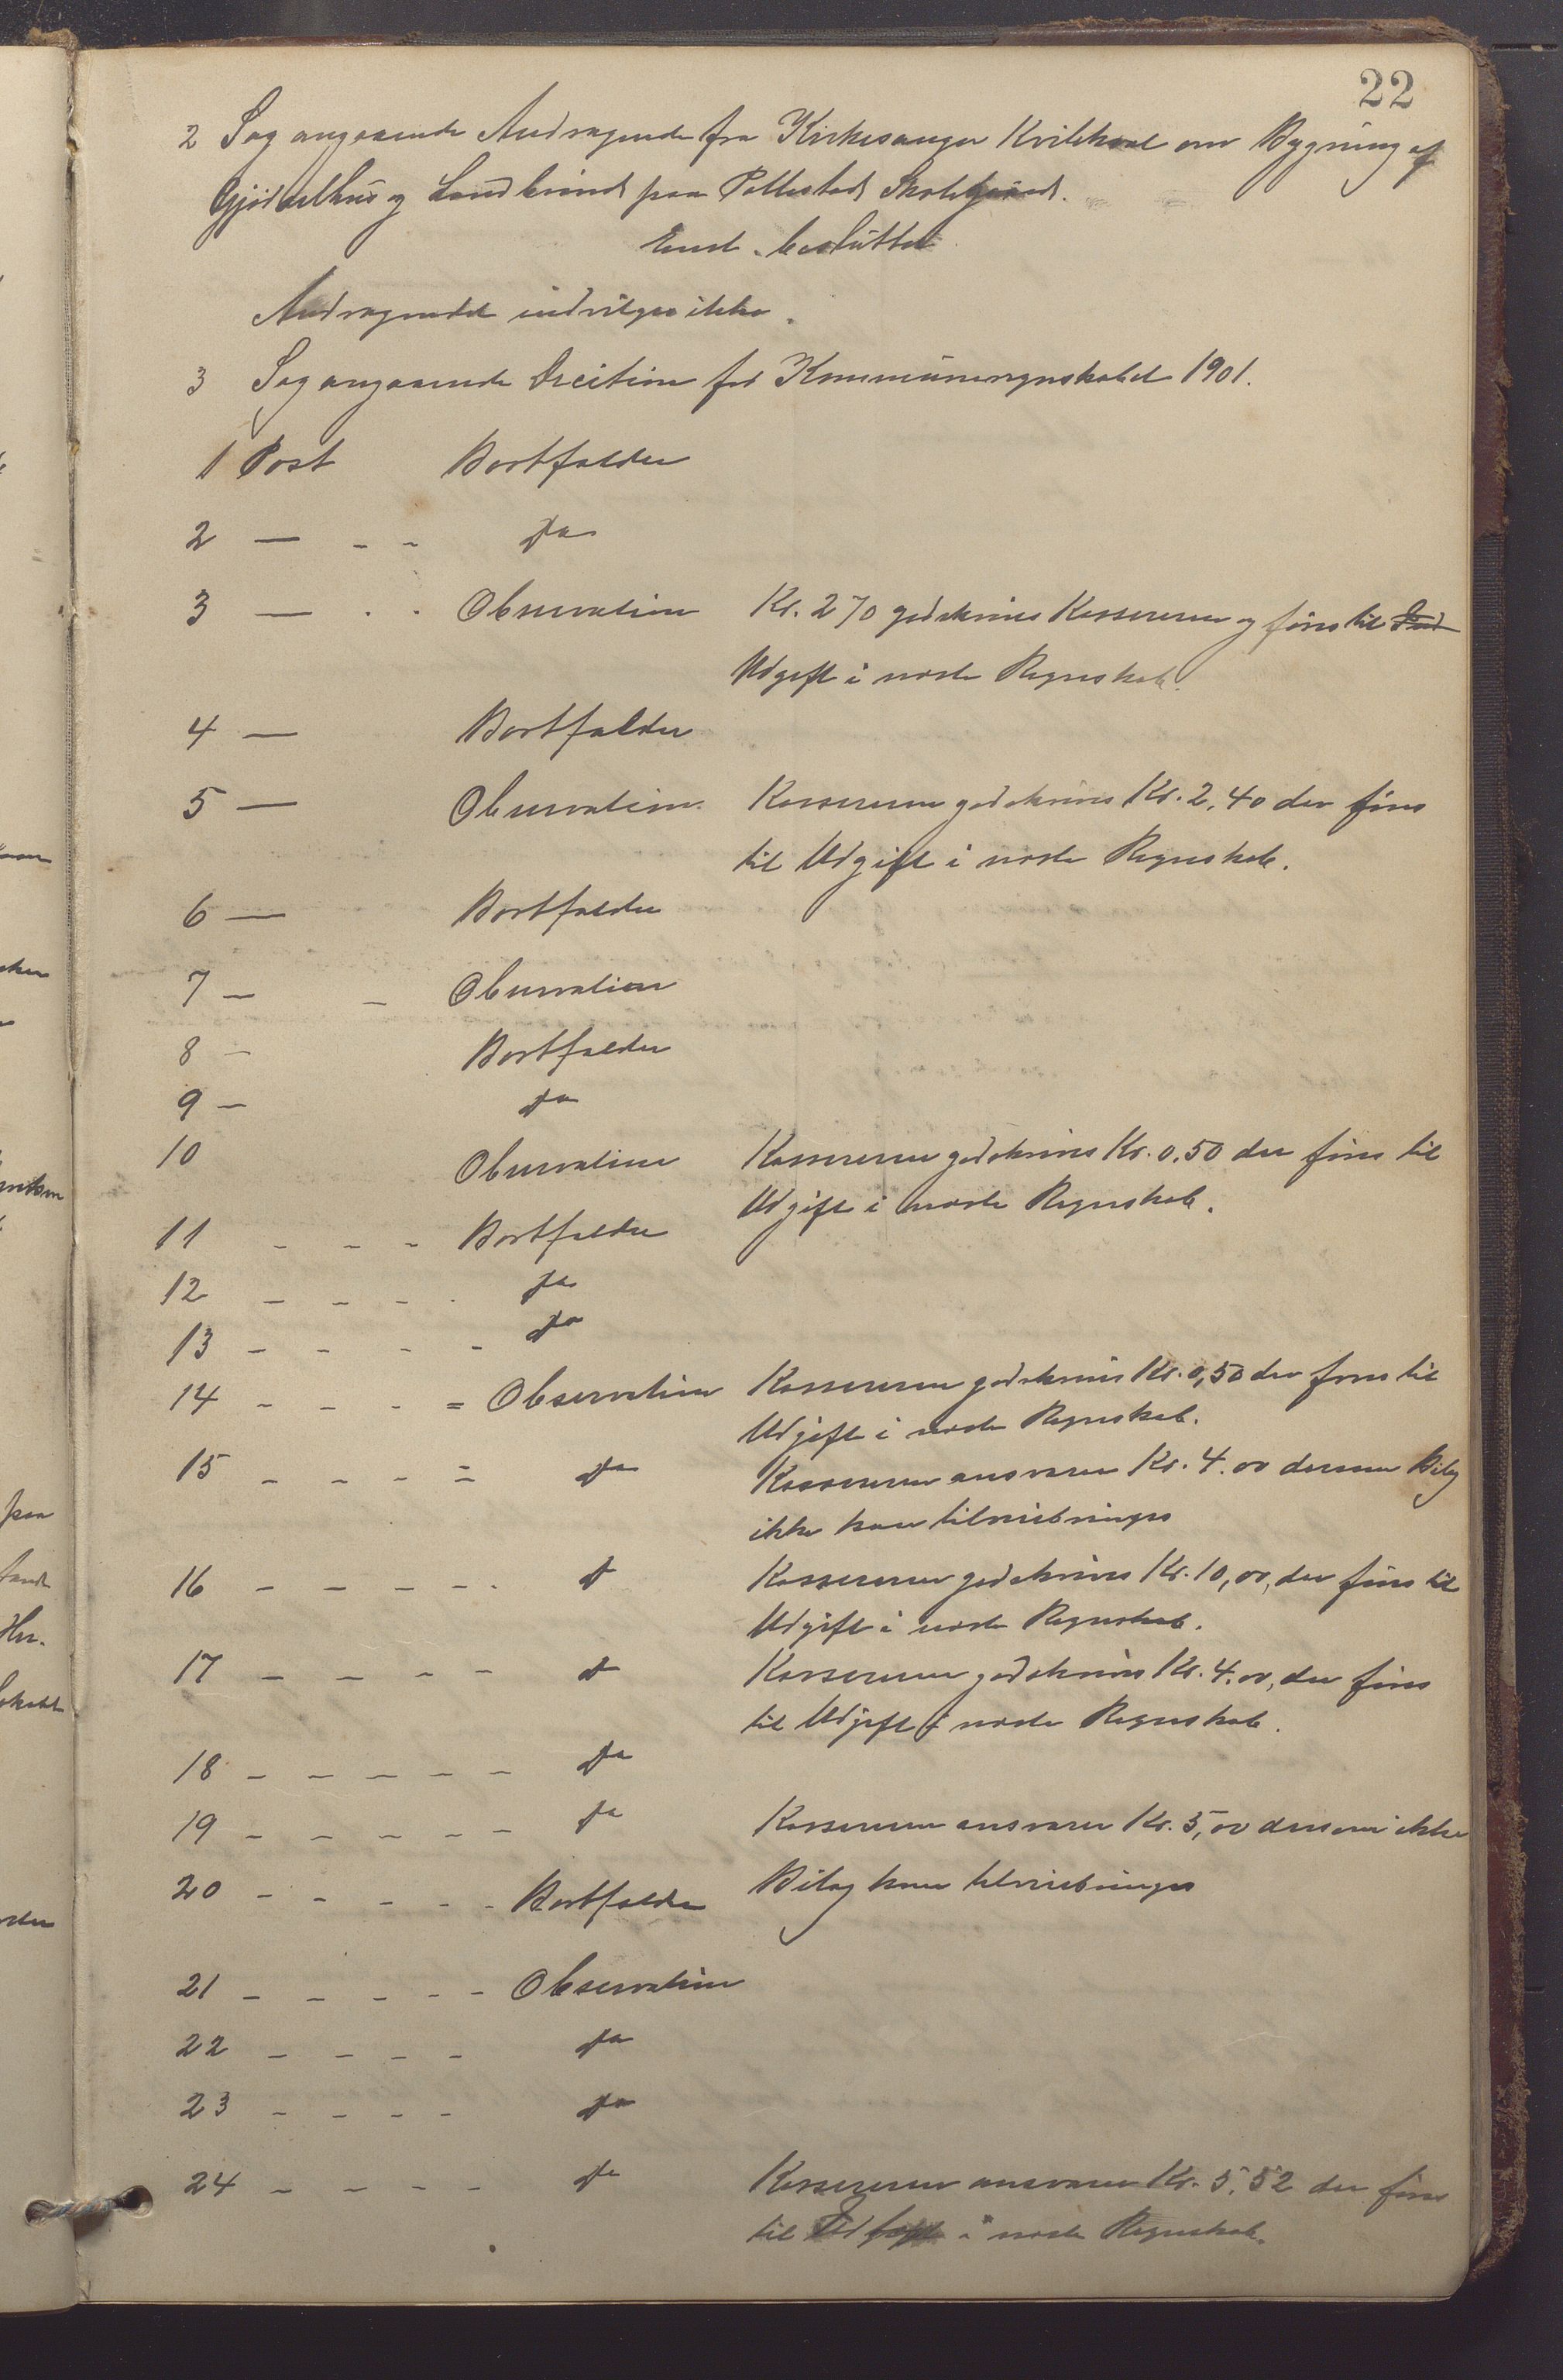 22
2 Sag angaaende Andragende fra Kirkesanger Kvilehval om Bygning af
Gjødselhus og paa Pollestad Skolegaard.
Enst. besluttet
Andragendet indvilges ikke.
3 Sag angaaende Decition for Kommuneregnskabet 1901.
1 Post Bortfalder
2 — - - Do
3 — - - Observation Kr. 270 godskrives Kassereren og føres til Ind
Udgift i næste Regnskab.
4 — Bortfalder
5 — Observation. Kassereren godskrives Kr. 2,40 der føres
til Udgift i næste Regnskab.
6 — Bortfalder
7 — - Observation
8 — Bortfalder
9 — Do
10 Observation Kassereren godskrives Kr. 0.50 der føres til
Udgift i næste Regnskab.
11 - - - Bortfalder
12 - - - - Do
13 - - - - Do
14 - - - = Observation Kassereren godskrives Kr. 0,50 der føres til
Udgift i næste Regnskab.
15 - - - = Do Kassereren ansvarer Kr. 4.00 dersom Bilag
ikke kan tilveiebringes
16 - - - - - D Kassereren godskrives Kr. 10,00, der føres til
Udgift i næste Regnskab.
17 - - - - D Kassereren godskrives Kr. 4.00, der føres
til Udgift i næste Regnskab.
18 - - - - - Do
19 - - - - - Do Kassereren ansvarer Kr. 5,00 dersom ikke
20 - - - - - Bortfalder Bilag kan tilveiebringes
21 - - - - - Observation
22 - - - - Do
23 - - - - Do
24 - - - - Do Kassereren ansvarer Kr. 5.52 der føres
til i næste Regnskab.